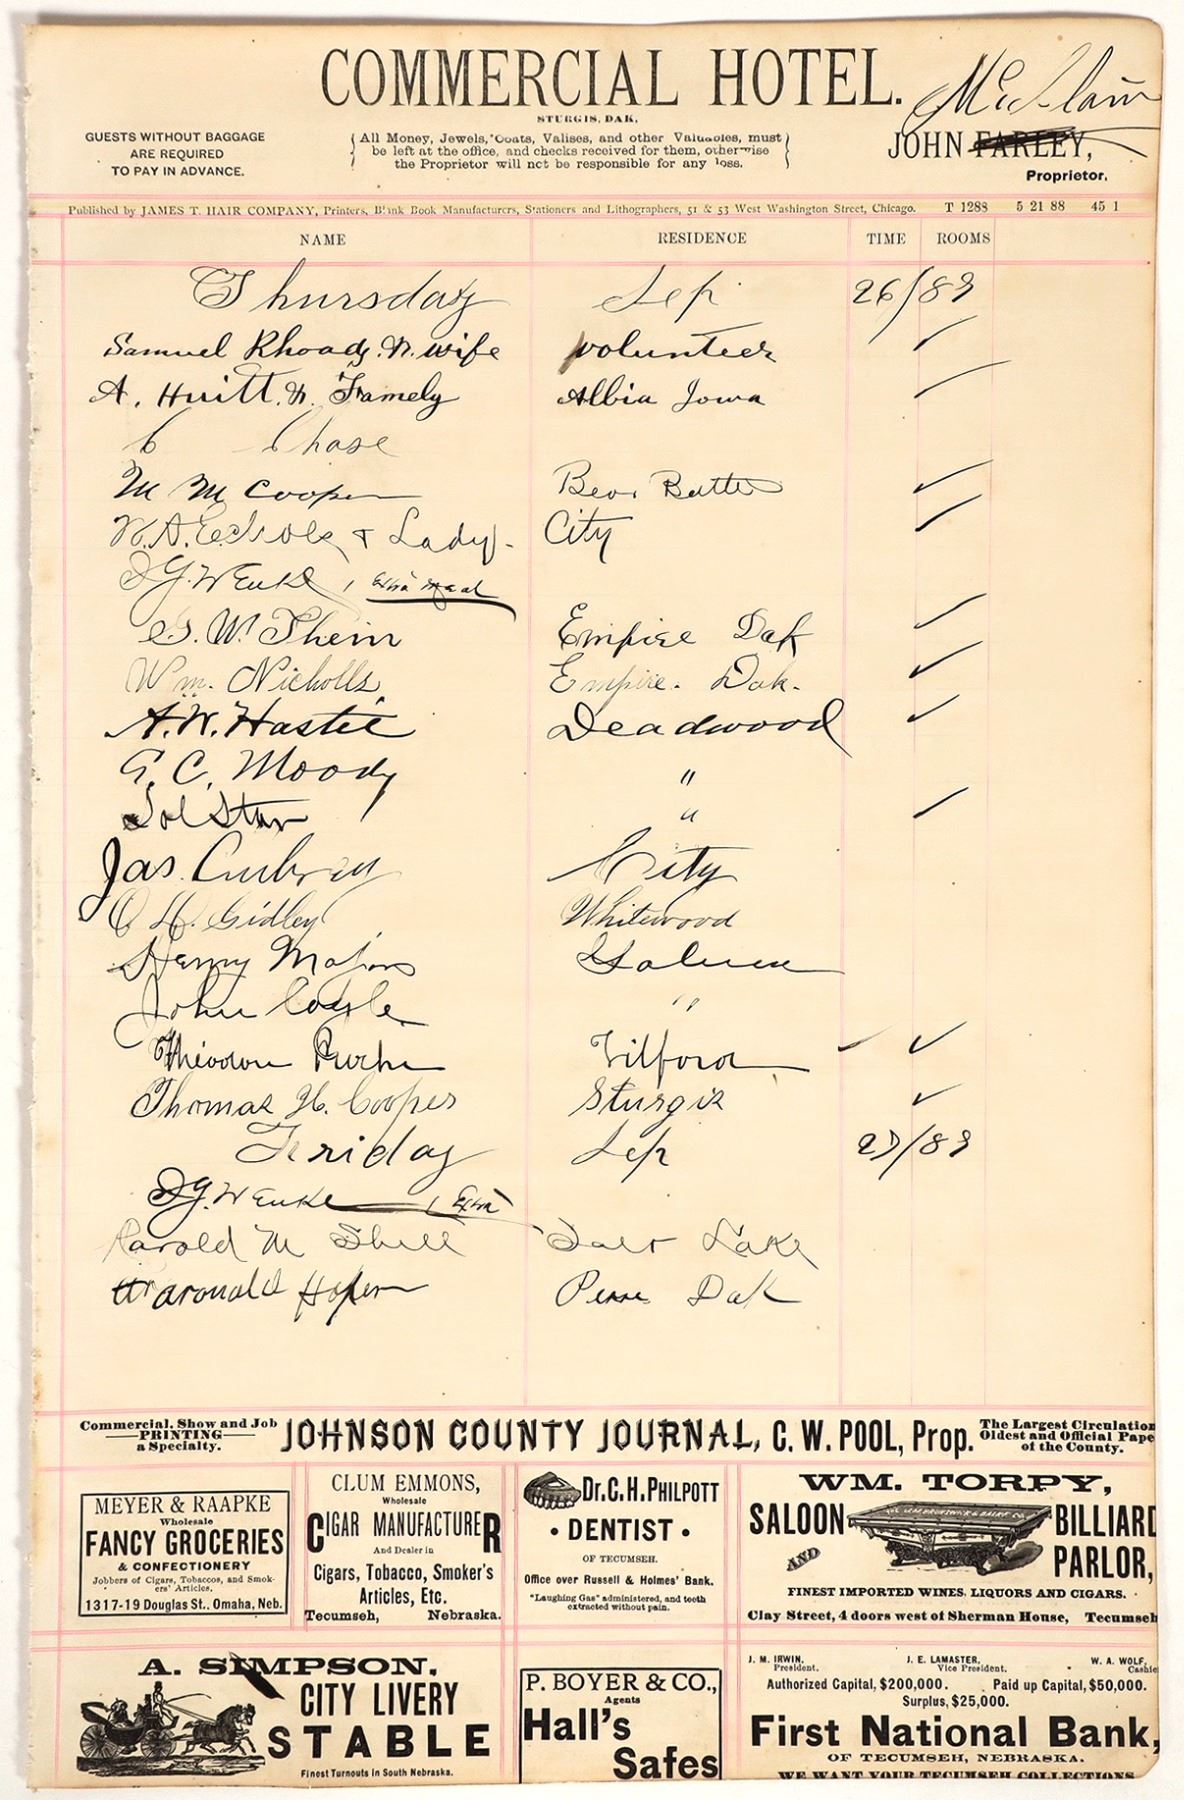 COMMERCIAL HOTEL.
STURGIS, DAK.
GUESTS WITHOUT BAGGAGE
ARE REQUIRED
TO PAY IN ADVANCE.
All Money, Jewels, Coats, Valises, and other Valuables, must
be left at the office, and checks received for them, otherwise
the Proprietor will not be responsible for any loss.
JOHN FARLEY,
Proprietor.
Published by JAMES T. HAIR COMPANY, Printers, Blank Book Manufacturers, Stationers and Lithographers, 51 & 53 West Washington Street, Chicago. T 1288 5 21 88 45 1
NAME RESIDENCE TIME ROOMS
Thursday Sep 26/89
Samuel Rhoads. & wife volunteer
A. Huitt. & Famely Albia Iowa
C Chase
M M Cooper Bear Butte
W. A. Echols & Lady. City
D G. Wenke 1 Extra meal
G. W. Thein Empire Dak
Wm. Nicholls Empire. Dak.
A. W. Hastie Deadwood
G. C. Moody "
Sol Star "
Jas. City
O H. Gidley Whitewood
Henry Majors Galena
John Coyle "
Theodore Tilford
Thomas H. Cooper Sturgis
Friday Sep 27/89
D G. Wenke 1 Extra
Harold M Shell Salt Lake
Dak
Commercial, Show and Job
PRINTING
a Specialty.
JOHNSON COUNTY JOURNAL, C. W. POOL, Prop.
The Largest Circulation
Oldest and Official Pape
of the County.
MEYER & RAAPKE
Wholesale
FANCY GROCERIES
& CONFECTIONERY
Jobbers of Cigars, Tobaccos, and Smok-
ers' Articles.
1317-19 Douglas St., Omaha, Neb.
CLUM EMMONS,
Wholesale
CIGAR MANUFACTURER
And Dealer in
Cigars, Tobacco, Smoker's
Articles, Etc.
Tecumseh, Nebraska.
Dr. C. H. PHILPOTT
• DENTIST •
OF TECUMSEH.
Office over Russell & Holmes' Bank.
"Laughing Gas" administered, and teeth
extracted without pain.
WM. TORPY,
SALOON
AND
BILLIARD
PARLOR,
FINEST IMPORTED WINES, LIQUORS AND CIGARS.
Clay Street, 4 doors west of Sherman House, Tecumseh
A. SIMPSON,
CITY LIVERY
STABLE
Finest Turnouts in South Nebraska.
P. BOYER & CO.,
Agents
Hall's
Safes
J. M. IRWIN, J. E. LAMASTER, W. A. WOLF,
President. Vice President. Cashie
Authorized Capital, $200,000. Paid up Capital, $50,000.
Surplus, $25,000.
First National Bank,
OF TECUMSEH, NEBRASKA.
WE WANT YOUR TECUMSEH COLLECTIONS